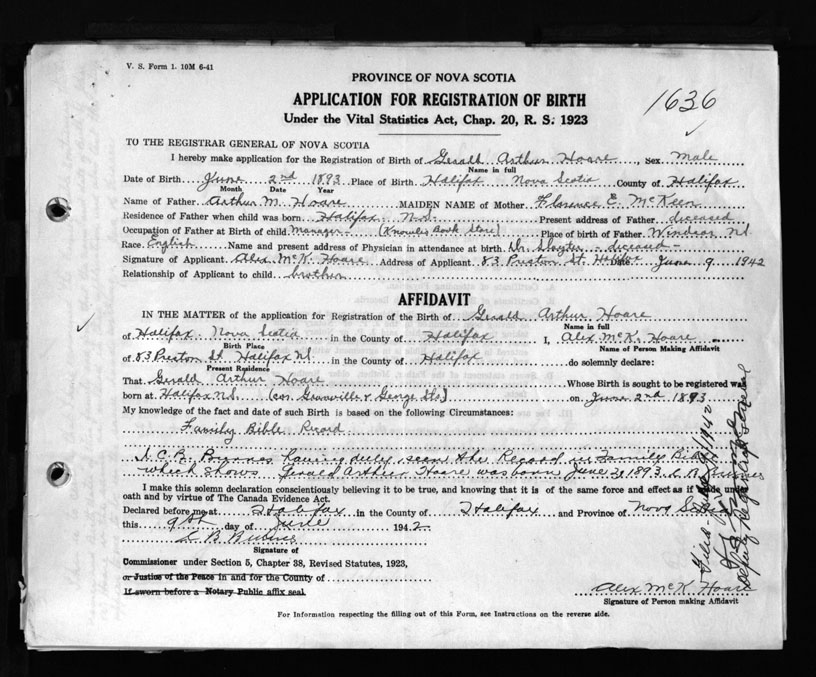 V. S. Form 1. 10M 6-41
PROVINCE OF NOVA SCOTIA
APPLICATION FOR REGISTRATION OF BIRTH
Under the Vital Statistics Act, Chap. 20, R. S. 1923
1636
TO THE REGISTRAR GENERAL OF NOVA SCOTIA
I hereby make application for the Registration of Birth of Gerald Arthur Hoare, Sex Male
Name in full
Date of Birth June 2nd 1893 Place of Birth Halifax Nova Scotia County of Halifax
Month Date Year
Name of Father Arthur M. Hoare MAIDEN NAME of Mother Florence E. McKeen
Residence of Father when child was born Halifax N.S. Present address of Father deceased
Occupation of Father at Birth of child Manager - (Knowles Book Store) Place of birth of Father Windsor NS
Race English Name and present address of Physician in attendance at birth Dr. Slayter - deceased -
Signature of Applicant Alex McK. Hoare Address of Applicant 83 Preston St. Halifax Date June 9 1942
Relationship of Applicant to child brother
AFFIDAVIT
IN THE MATTER of the application for Registration of the Birth of Gerald Arthur Hoare
Name in full
of Halifax Nova Scotia in the County of Halifax I, Alex McK. Hoare
Birth Place Name of Person Making Affidavit
of 83 Preston St. Halifax NS in the County of Halifax do solemnly declare:
Present Residence
That Gerald Arthur Hoare Whose Birth is sought to be registered was
born at Halifax N.S. (cor Granville & George Sts) on June 2nd 1893
My knowledge of the fact and date of such Birth is based on the following Circumstances:
Family Bible Record
having duly seen the Record in Family Bible
which shows Gerald Arthur Hoare was born June 2, 1893.
I make this solemn declaration conscientiously believing it to be true, and knowing that it is of the same force and effect as if made under
oath and by virtue of The Canada Evidence Act.
Declared before me at Halifax in the County of Halifax and Province of Nova Scotia
this 9th day of June 1942
Signature of
Commissioner under Section 5, Chapter 38, Revised Statutes, 1923,
or Justice of the Peace in and for the County of
If sworn before a Notary Public affix seal
Alex McK Hoare
Signature of Person making Affidavit
For Information respecting the filling out of this Form, see Instructions on the reverse side.
Filed 1942
Deputy Registrar General